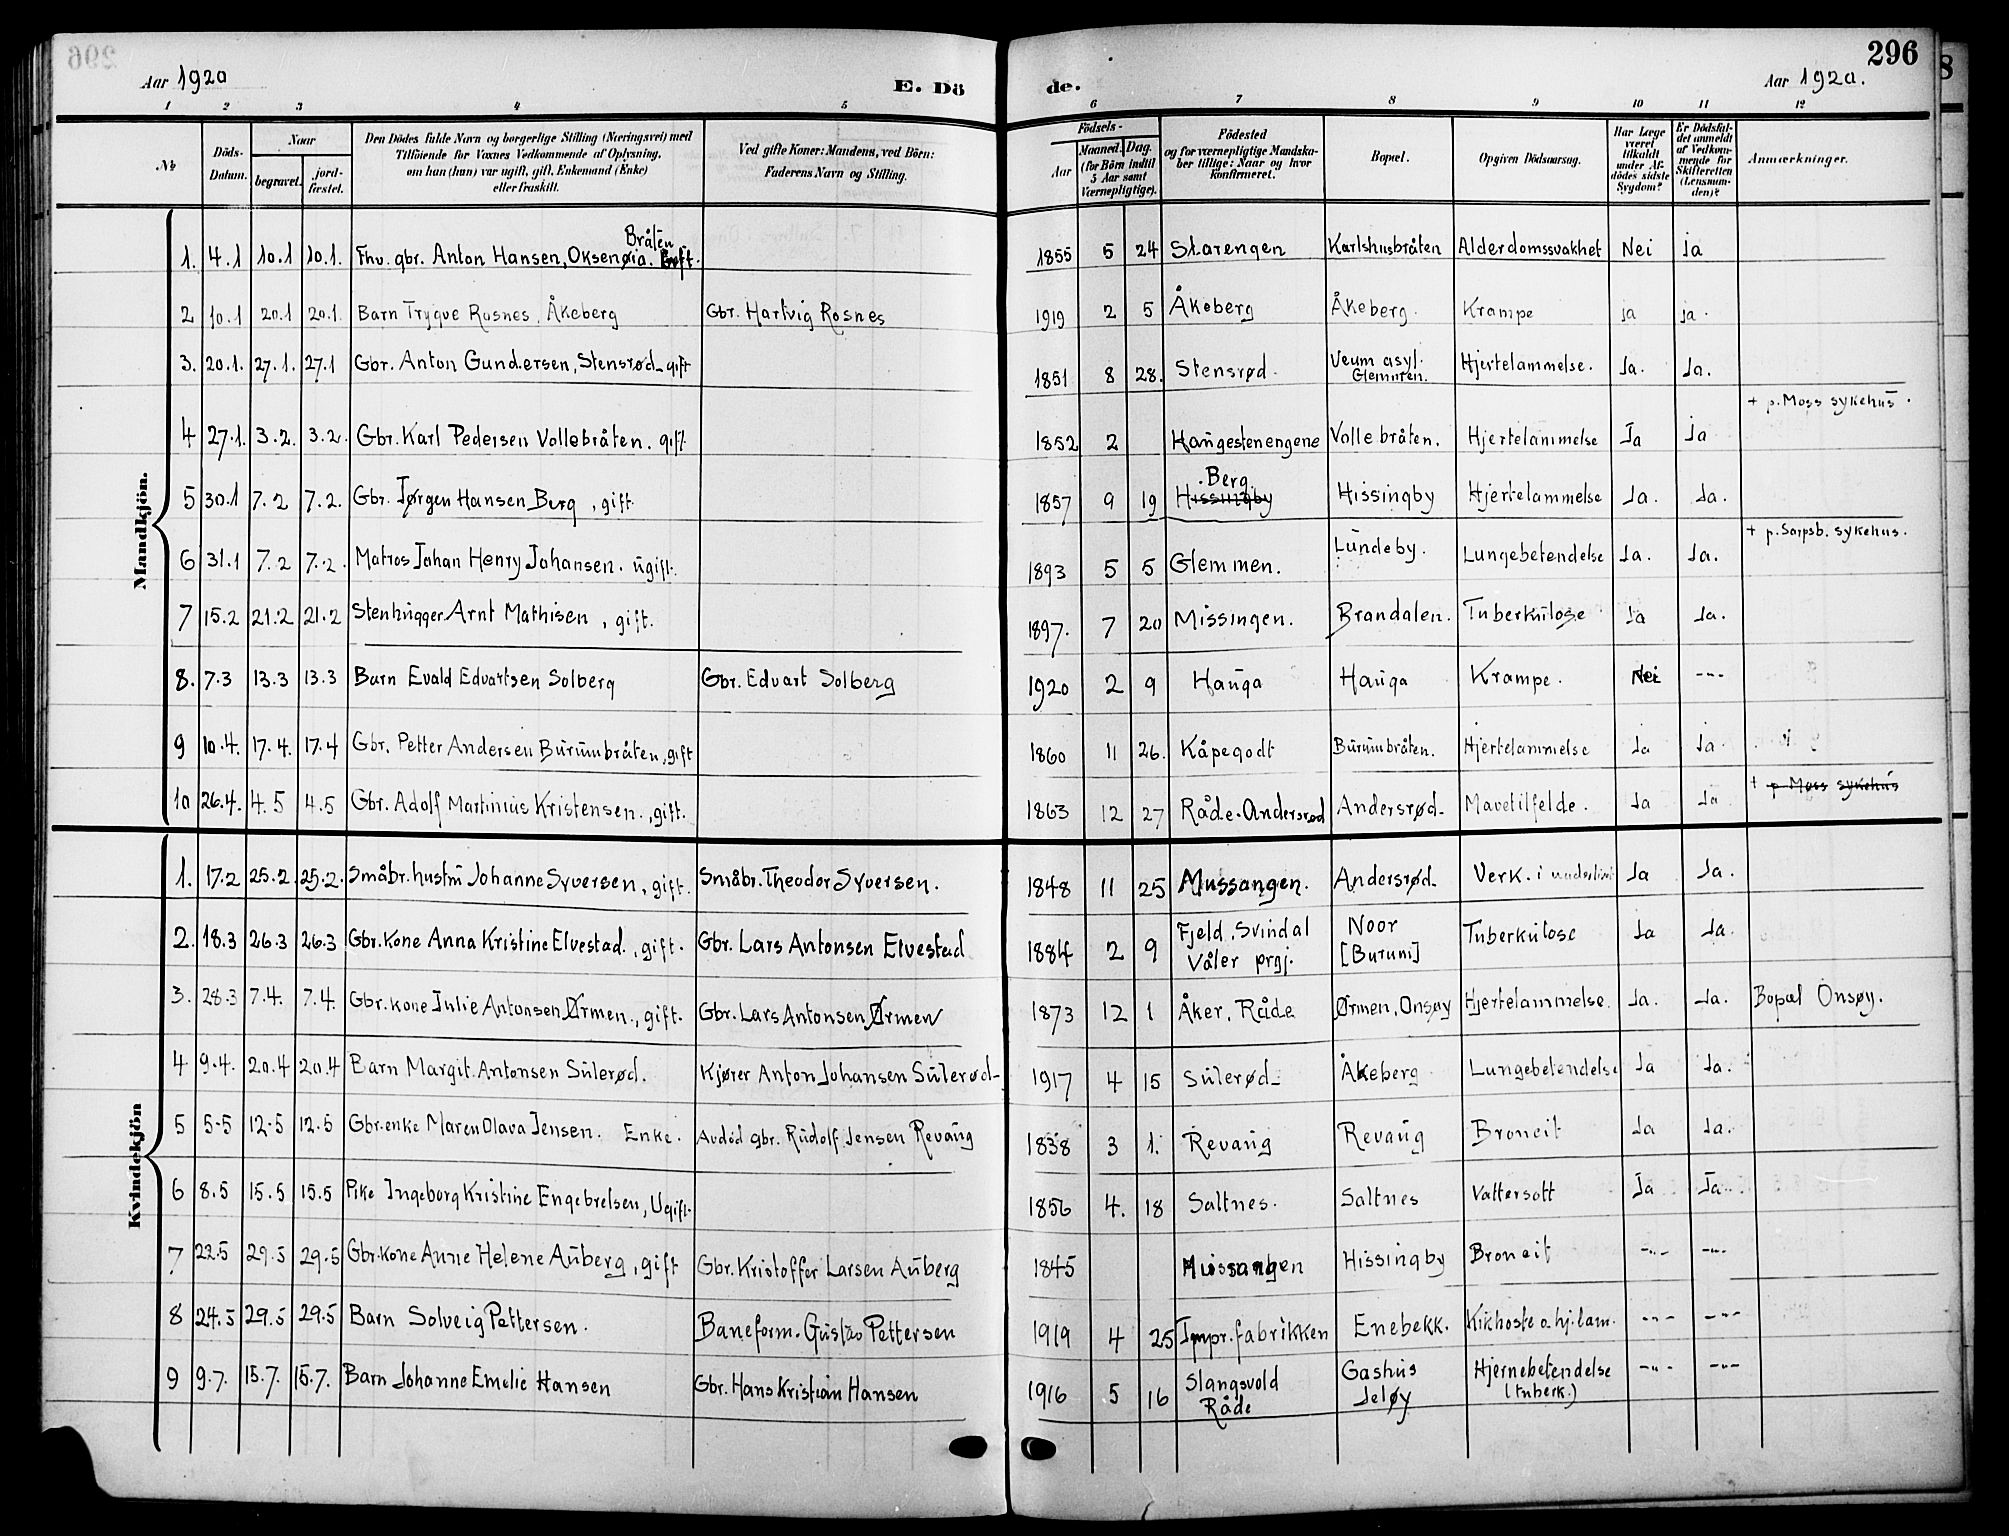 296
Aar 1920 E. Dö de. Aar 1920.
1 2 3 4 5 6 7 8 9 10 11 12
№ Döds-Datum. Naar begravet. jord-fæstet. Den Dödes fulde Navn og borgerlige Stilling (Næringsvei) med Tilföiende for Voxnes Vedkommende af Oplysning, om han (hun) var ugift, gift, Enkemand (Enke) eller fraskilt. Ved gifte Koner: Mandens, ved Börn: Faderens Navn og Stilling. Födsels- Aar Maaned. Dag. (for Börn indtil 5 Aar samt Værnepligtige). Födested og for værnepligtige Mandskaber tillige: Naar og hvor konfirmeret. Bopæl. Opgiven Dödsaarsag. Har Læge været tilkaldt under Afdödes sidste Sygdom? Er Dödsfaldet anmeldt af Vedkommende for Skifteretten (Lensmanden)? Anmærkninger.
Mandkjön.
1. 4.1 10.1 10.1. Fhv. gbr. Anton Hansen, Oksenøia. Bråten 1855 5 24 Starengen Karlshusbråten Alderdomssvakhet Nei ja
2 10.1 20.1 20.1. Barn Trygve Rosnes, Åkeberg Gbr. Hartvig Rosnes 1919 2 5 Åkeberg Åkeberg. Krampe ja ja.
3. 20.1. 27.1. 27.1 Gbr. Anton Gundersen, Stensrød - gift 1851 8 28. Stensrød. Veum asyl. Glemmen. Hjertelammelse. Ja. Ja.
4 27.1. 3.2. 3.2. Gbr. Karl Pedersen Vollebråten. gift 1852 2 Haugestenengene Vollebråten. Hjertelammelse Ja Ja + p. Moss sykehus.
5 30.1 7.2 7.2. Gbr. Jørgen Hansen Berg, gift. 1857 9 19 Berg. Hissingby Hissingby Hjertelammelse Ja. Ja.
6 31.1 7.2 7.2. Matros Johan Henry Johansen. ugift. 1893 5 5 Glemmen. Lundeby. Lungebetendelse Ja. Ja. + p. Sarpsb. sykehus.
7 15.2 21.2 21.2 Stenhugger Arnt Mathisen, gift. 1897. 7 20 Missingen. Brandalen. Tuberkulose Ja Ja.
8. 7.3 13.3 13.3 Barn Evald Edvartsen Solberg Gbr. Edvart Solberg 1920 2 9 Hauga Hauga Krampe. Nei -"-
9 10.4. 17.4. 17.4 Gbr. Petter Andersen Burumbråten, gift 1860 11 26. Kåpegodt Burumbråten. Hjertelammelse Ja Ja.
10 26.4. 4.5 4.5 Gbr. Adolf Martinius Kristensen., gift. 1863 12 27 Råde. Andersrød Andersrød- Mavetilfelde. Ja Ja + p. Moss sykehus
Kvindekjön
1. 17.2 25.2. 25.2. Småbr. hustru Johanne Syversen, gift. Småbr. Theodor Syversen. 1848 11 25 Mussangen. Andersrød- Verk. i underlivet Ja Ja.
2. 18.3 26.3 26.3 Gbr. kone Anna Kristine Elvestad., gift. Gbr. Lars Antonsen Elvestad 1884 2 9 Fjeld, Svindal Våler prgj. Noor [Burum] Tuberkulose Ja Ja.
3. 28.3 7.4. 7.4. Gbr. kone Julie Antonsen Ørmen., gift. Gbr. Lars Antonsen Ørmen 1873 12 1 Åker, Råde Ørmen, Onsøy Hjertelammelse. Ja. Ja. Bopæl Onsøy.
4 9.4. 20.4 20.4 Barn Margit Antonsen Sulerød. Kjører Anton Johansen Sulerød- 1917 4 15 Sulerød- Åkeberg Lungebetendelse Ja Ja.
5 5-5 12-5 12.5 Gbr. enke Maren Olava Jensen. Enke. Avdød gbr. Rudolf Jensen Revaug 1838 3 1. Revaug Revaug Broncit Ja Ja.
6 8.5 15.5 15.5 Pike Ingeborg Kristine Engebretsen, Ugift. 1856 4. 18 Saltnes. Saltnes Vattersott Ja Ja.
7 22.5 29.5 29.5 Gbr. kone Anne Helene Auberg, gift Gbr. Kristoffer Larsen Auberg 1845 Mussangen Hissingby Broncit -"- -"-
8 24.5 29.5 29.5 Barn Solveig Pettersen. Baneform. Gustav Pettersen 1919 4 25 Impr. fabrikken Enebekk. Kikhoste o. hj. lam. -"- -"-
9 9.7. 15.7. 15.7. Barn Johanne Emelie Hansen Gbr. Hans Kristian Hansen 1916 5 16 Slangsvold Råde Gashus Jeløy Hjernebetendelse (tuberk.) -"- -"-